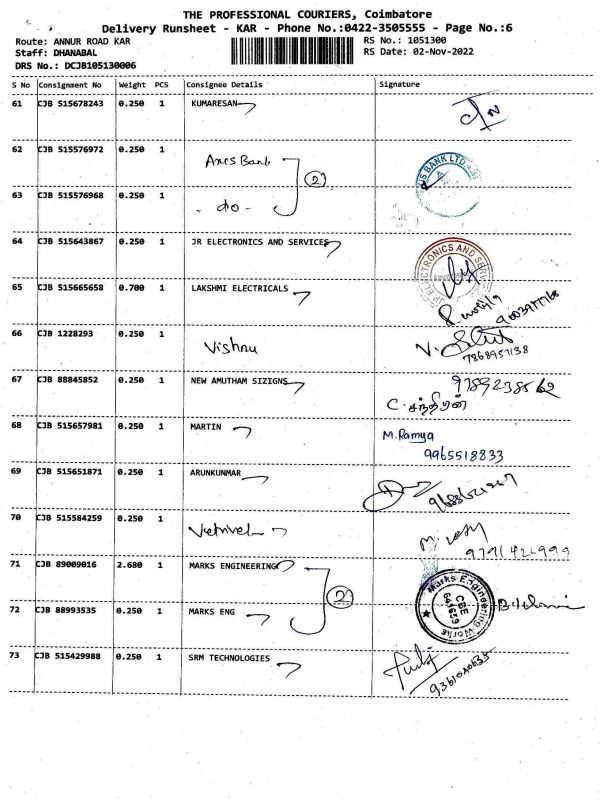 THE PROFESSIONAL COURIERS, Coimbatore
Delivery Runsheet - KAR - Phone No.:0422-3505555 - Page No.:6
Route: ANNUR ROAD KAR
RS No.: 1051300
Staff: DHANABAL
RS Date: 02-Nov-2022
DRS No.: DCJB105130006
S No Consignment No Weight PCS Consignee Details Signature
61 CJB 515678243 0.250 1 KUMARESAN
62 CJB 515576972 0.250 1 Axis Bank
2
63 CJB 515576968 0.250 1 - do -
64 CJB 515643867 0.250 1 JR ELECTRONICS AND SERVICES
65 CJB 515665658 0.700 1 LAKSHMI ELECTRICALS
66 CJB 1228293 0.250 1 Vishnu
7868957138
67 CJB 88845852 0.250 1 NEW AMUTHAM SIZIGNS 9789238562
68 CJB 515657981 0.250 1 MARTIN M. Ramya
9965518833
69 CJB 515651871 0.250 1 ARUNKUNMAR
70 CJB 515584259 0.250 1 Vetrivel
9791422999
71 CJB 89009016 2.680 1 MARKS ENGINEERING
2
Marks Engineering Works
CBE
641659
72 CJB 88993535 0.250 1 MARKS ENG
73 CJB 515429988 0.250 1 SRM TECHNOLOGIES